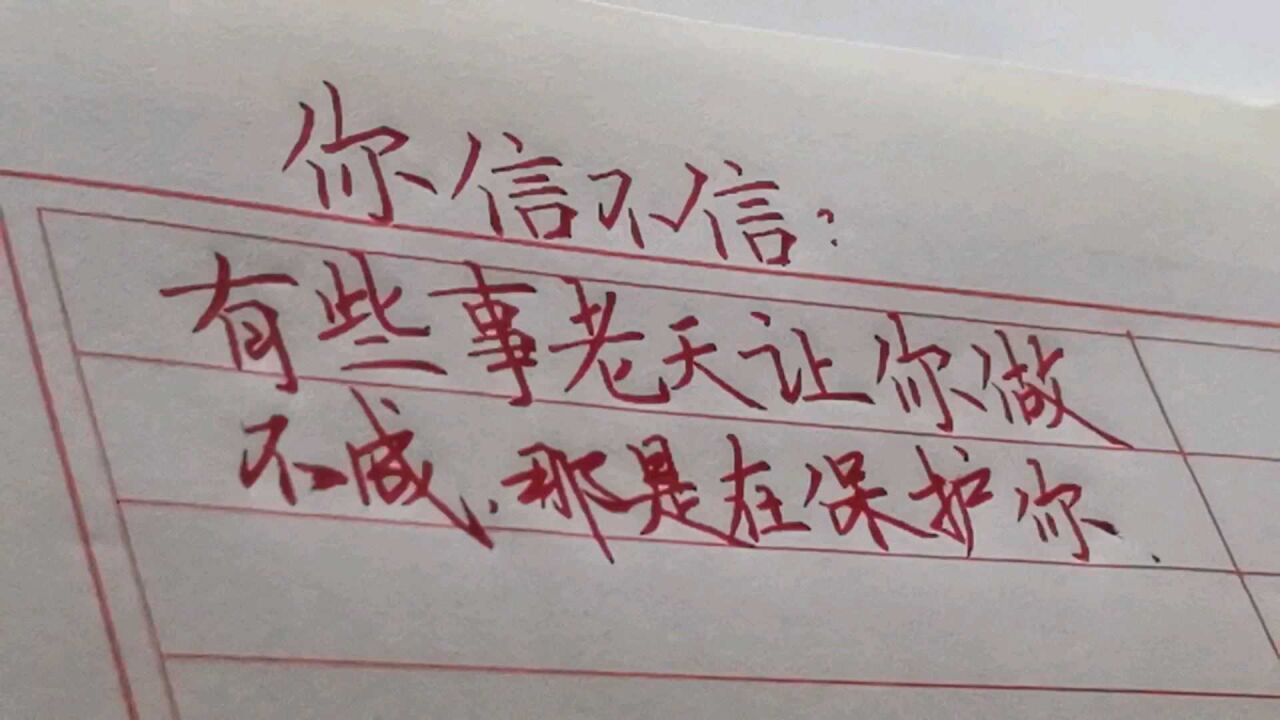 你信不信:
有些事老天让你做
不成,那是在保护你.